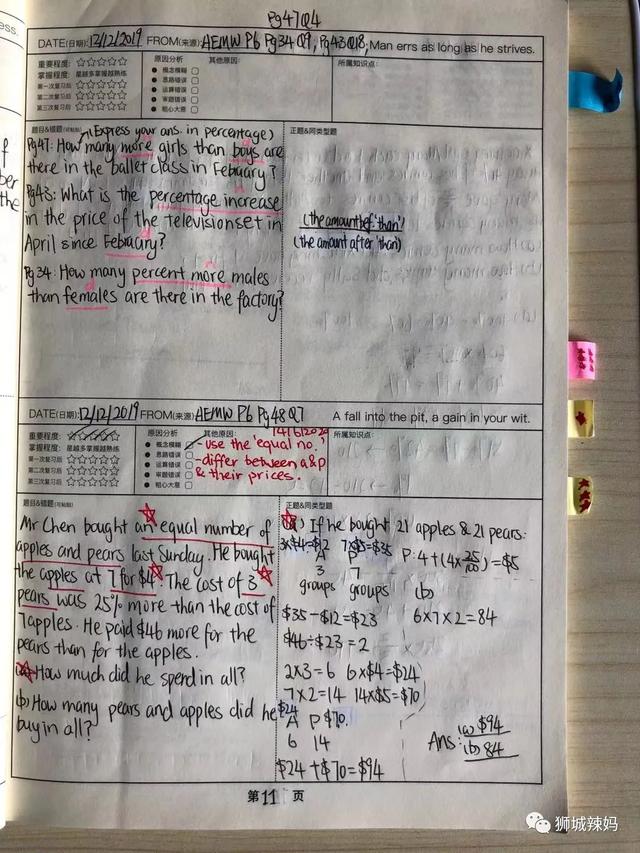 Pg47Q4
DATE(日期): 12/12/2019 FROM(来源): AEMW P6 Pg34 Q9, Pg43Q18, Man errs as long as he strives.
重要程度: ☆☆☆☆☆
掌握程度: 星越多掌握越熟练
第一次复习后 ☆☆☆☆☆
第二次复习后 ☆☆☆☆☆
第三次复习后 ☆☆☆☆☆
原因分析
概念模糊
思路错误
运算错误
审题错误
粗心大意
其他原因:
所属知识点:
题目&错题(可粘贴)
(Express your ans. in percentage)
Pg47: How many more girls than boys are
there in the ballet class in February?
Pg43: What is the percentage increase
in the price of the television set in
April since February?
Pg34: How many percent more males
than females are there in the factory?
正题&同类型题
(the amount bef. 'than')
(the amount after 'than')
DATE(日期): 12/12/2019 FROM(来源): AEMW P6 Pg48Q7 A fall into the pit, a gain in your wit.
重要程度: ☆☆☆☆☆
掌握程度: 星越多掌握越熟练
第一次复习后 ☆☆☆☆☆
第二次复习后 ☆☆☆☆☆
第三次复习后 ☆☆☆☆☆
原因分析
概念模糊
思路错误
运算错误
审题错误
粗心大意
其他原因: 14/6/2020
- use the 'equal no.'
- differ between a&p
& their prices.
所属知识点:
题目&错题(可粘贴)
Mr Chen bought an equal number of
apples and pears last Sunday. He bought
the apples at 7 for $4. The cost of 3
pears was 25% more than the cost of
7 apples. He paid $46 more for the
pears than for the apples.
(a) How much did he spend in all?
(b) How many pears and apples did he
buy in all?
正题&同类型题
(a) If he bought 21 apples & 21 pears:
3x$4=$12 7x$5=$35
A P
3 7
groups groups
P: 4+(4x25/100)=$5
$35-$12=$23
$46÷$23=2
2x3=6 6x$4=$24
7x2=14 14x$5=$70
$24
A P $70
6 14
$24+$70=$94
(b)
6x7x2=84
Ans: (a) $94
(b) 84
第 11 页
狮城辣妈